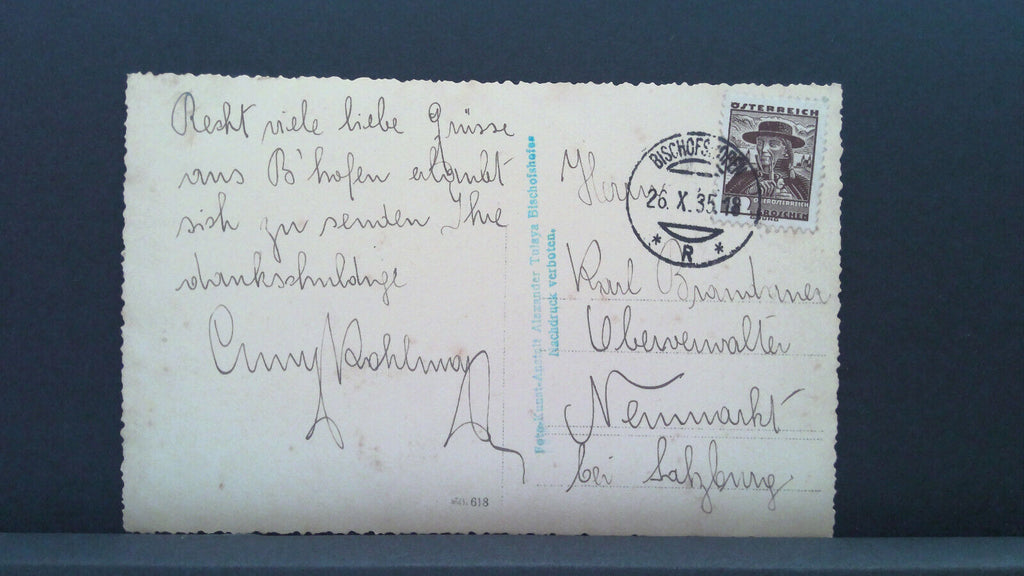 Recht viele liebe Grüsse
aus B'hofen erlaubt
sich zu senden Ihre
dankschuldige
Kohlmay
618
Foto-Kunst-Anstalt Alexander Tulaya Bischofshofen
Nachdruck verboten.
ÖSTERREICH
OBERÖSTERREICH
GROSCHEN
BISCHOFSHOFEN
26. X. 35. 18
* R *
Herrn
Karl Brandauer
Oberverwalter
Neumarkt
bei Salzburg